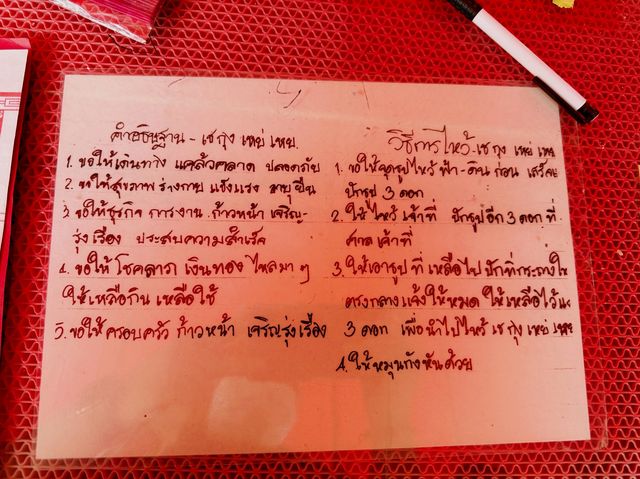 คำอธิษฐาน - เช กุง เหมี่ เหย.
1. ขอให้เดินทาง แคล้วคลาด ปลอดภัย
2. ขอให้สุขภาพ ร่างกาย แข็งแรง อายุยืน
3 ขอให้ธุรกิจ การงาน ก้าวหน้า เจริญ-
รุ่งเรือง ประสบความสำเร็จ
4. ขอให้ โชคลาภ เงินทอง ไหลมา ๆ
ให้เหลือกิน เหลือใช้
5. ขอให้ ครอบครัว ก้าวหน้า เจริญรุ่งเรือง
วิธีการไหว้ - เช กุง
1. ขอให้จุดธูปไหว้ ฟ้า - ดิน ก่อน เสร็จแล
ปักธูป 3 ดอก
2. ให้ไหว้ เจ้าที่ ปักธูปอีก 3 ดอก ที่
ศาล เจ้าที่
3. ให้เอาธูป ที่ เหลือไป ปักที่กระถางให
ตรงกลางแจ้งให้หมด ให้เหลือไว้
3 ดอก เพื่อนำไปไหว้ เช กุง
4. ให้หมุนกังหันด้วย